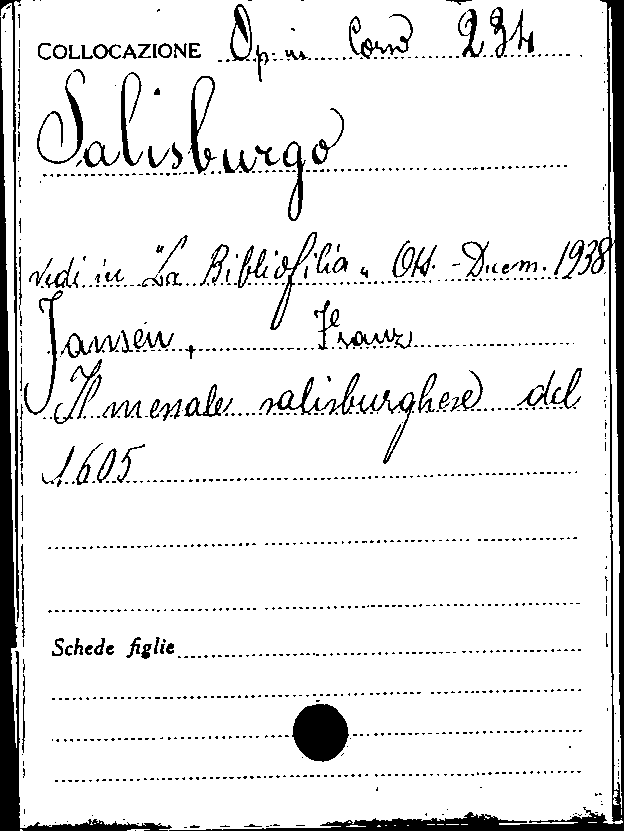 COLLOCAZIONE Op. in Corso 234
Salisburgo
Vedi in "La Bibliofilia" Ott. - Dicem. 1938
Jansen, Franz
Il messale salisburghese del
1605
Schede figlie